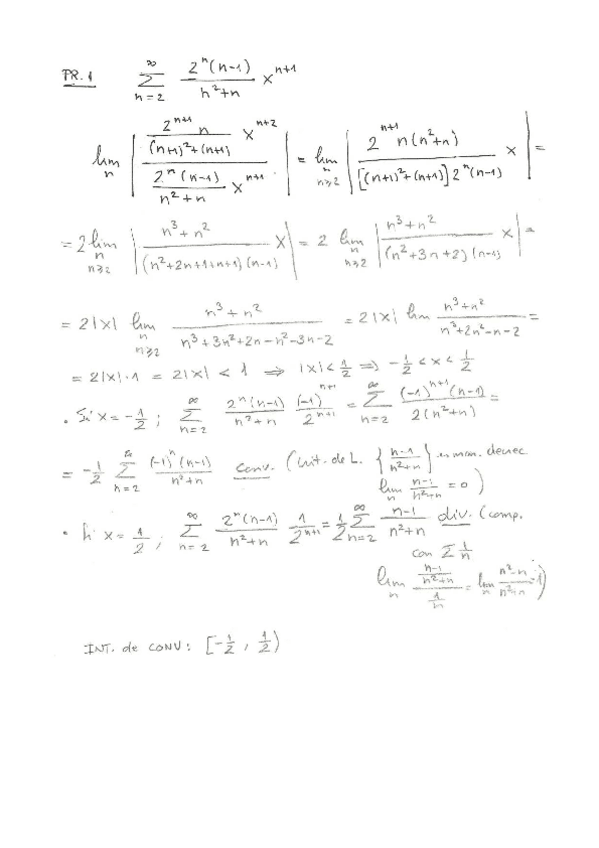 PR. 1 \sum_{n=2}^{\infty} \frac{2^n(n-1)}{n^2+n} x^{n+1}
\lim_n \left| \frac{\frac{2^{n+1} n}{(n+1)^2+(n+1)} x^{n+2}}{\frac{2^n(n-1)}{n^2+n} x^{n+1}} \right| = \lim_{n \geq 2} \left| \frac{2^{n+1} n(n^2+n)}{[(n+1)^2+(n+1)] 2^n(n-1)} x \right| =
= 2 \lim_{n, n \geq 2} \left| \frac{n^3+n^2}{(n^2+2n+1+n+1)(n-1)} x \right| = 2 \lim_{n, n \geq 2} \left| \frac{n^3+n^2}{(n^2+3n+2)(n-1)} x \right| =
= 2|x| \lim_{n, n \geq 2} \frac{n^3+n^2}{n^3+3n^2+2n-n^2-3n-2} = 2|x| \lim \frac{n^3+n^2}{n^3+2n^2-n-2} =
= 2|x| \cdot 1 = 2|x| < 1 ⇒ |x| < \frac{1}{2} ⇒ -\frac{1}{2} < x < \frac{1}{2}
· Si x = -\frac{1}{2} ; \sum_{n=2}^{\infty} \frac{2^n(n-1)}{n^2+n} \frac{(-1)^{n+1}}{2^{n+1}} = \sum_{n=2}^{\infty} \frac{(-1)^{n+1}(n-1)}{2(n^2+n)} =
= -\frac{1}{2} \sum_{n=2}^{\infty} \frac{(-1)^n(n-1)}{n^2+n} conv. (Crit. de L. \left\{ \frac{n-1}{n^2+n} \right\} mon. decrec
\lim_n \frac{n-1}{n^2+n} = 0 )
· Si x = \frac{1}{2} ; \sum_{n=2}^{\infty} \frac{2^n(n-1)}{n^2+n} \frac{1}{2^{n+1}} = \frac{1}{2} \sum_{n=2}^{\infty} \frac{n-1}{n^2+n} div. (comp.
con Σ \frac{1}{n}
\lim_n \frac{\frac{n-1}{n^2+n}}{\frac{1}{n}} = \lim_n \frac{n^2-n}{n^2+n} = 1)
INT. de CONV: [-\frac{1}{2}, \frac{1}{2})